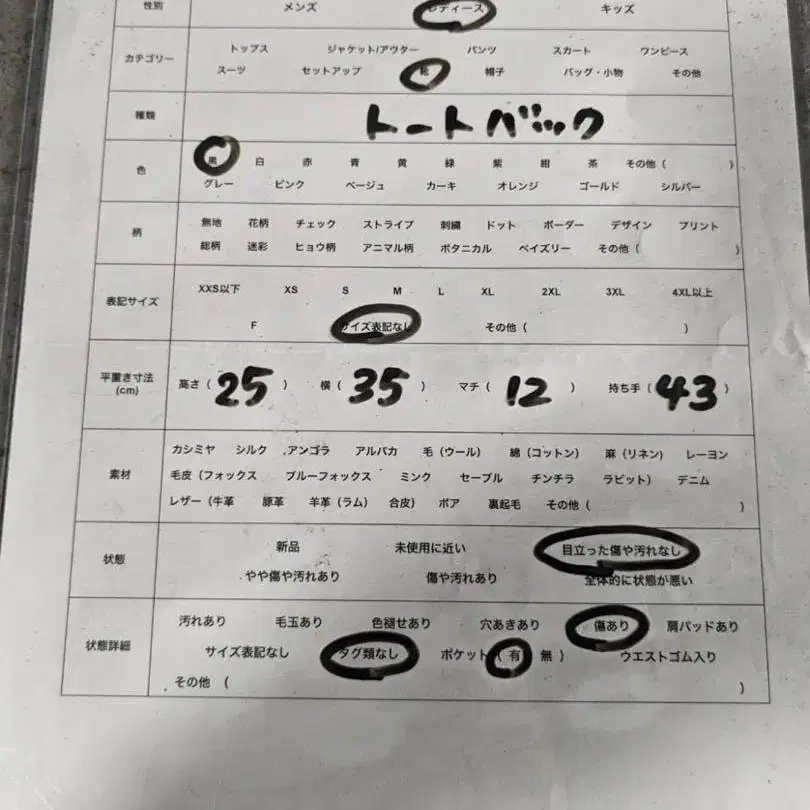 性別 メンズ レディース キッズ
カテゴリー
トップス ジャケット/アウター パンツ スカート ワンピース
スーツ セットアップ 靴 帽子 バッグ・小物 その他
種類 トートバック
色
黒 白 赤 青 黄 緑 紫 紺 茶 その他 ( )
グレー ピンク ベージュ カーキ オレンジ ゴールド シルバー
柄
無地 花柄 チェック ストライプ 刺繍 ドット ボーダー デザイン プリント
総柄 迷彩 ヒョウ柄 アニマル柄 ボタニカル ペイズリー その他 ( )
表記サイズ
XXS以下 XS S M L XL 2XL 3XL 4XL以上
F サイズ表記なし その他 ( )
平置き寸法
(cm)
高さ ( 25 ) 横 ( 35 ) マチ ( 12 ) 持ち手 ( 43 )
素材
カシミヤ シルク アンゴラ アルパカ 毛 (ウール) 綿 (コットン) 麻 (リネン) レーヨン
毛皮 (フォックス ブルーフォックス ミンク セーブル チンチラ ラビット) デニム
レザー (牛革 豚革 羊革 (ラム) 合皮) ボア 裏起毛 その他 ( )
状態
新品 未使用に近い 目立った傷や汚れなし
やや傷や汚れあり 傷や汚れあり 全体的に状態が悪い
状態詳細
汚れあり 毛玉あり 色褪せあり 穴あきあり 傷あり 肩パッドあり
サイズ表記なし タグ類なし ポケット ( 有 無 ) ウエストゴム入り
その他 ( )